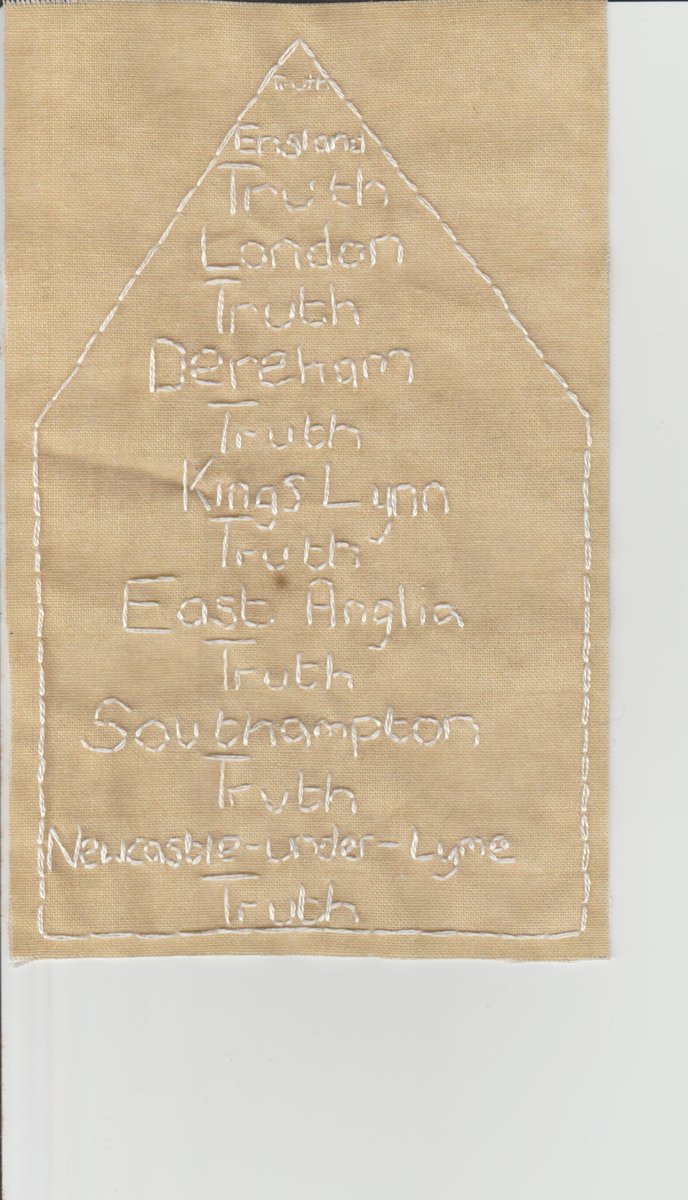 Truth
England
Truth
London
Truth
Dereham
Truth
Kings Lynn
Truth
East Anglia
Truth
Southampton
Truth
Newcastle-under-Lyme
Truth